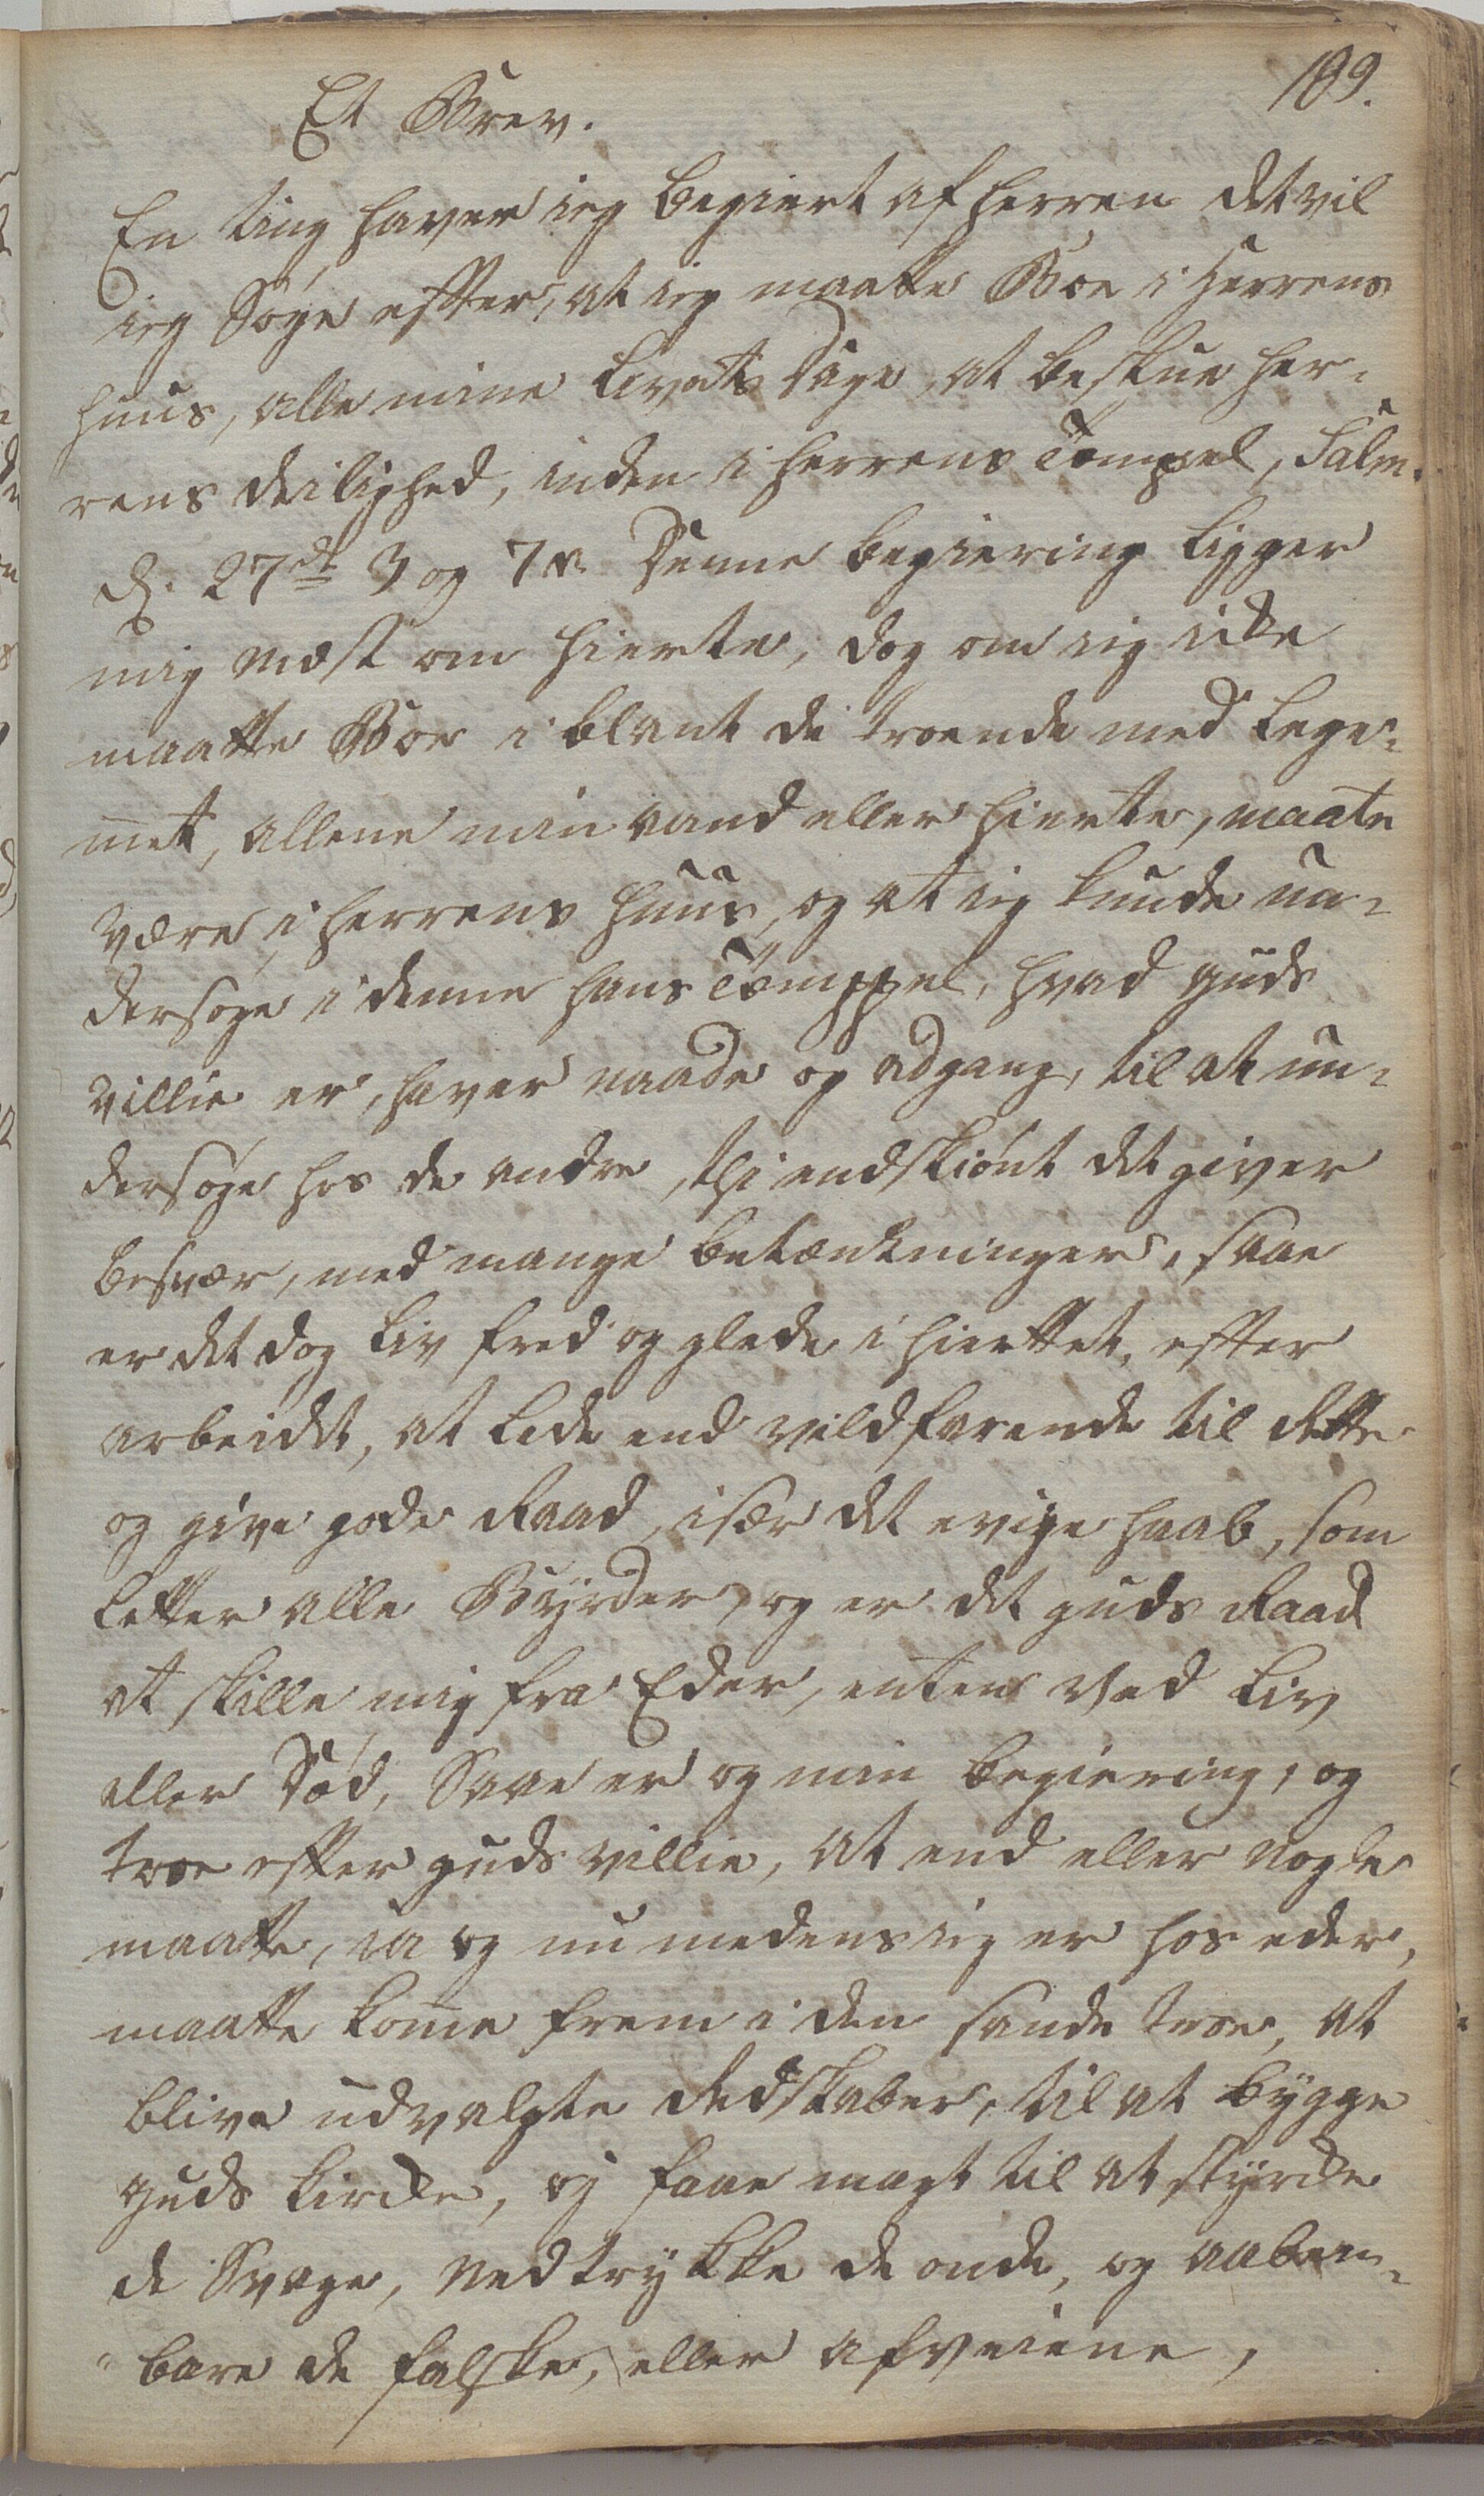 189.
Et Brev.
En ting haver ieg begiert af herren det vil
ieg Søge efter, at ieg maatte Boe i Herrens
huus, alle mine Livets Dage, at beskue her-
rens deilighed, inden i herrens Tempel, Salm.
d. 27de 3 og 7 v. Denne begiering ligger
mig mest om hierte, dog om ieg icke
maatte Boe i blant de troende med Lege-
met, allene min aand eller hierte, maate
være i herrens huus, og at ieg kunde un-
dersøge i denne hans Temppel, hvad guds
villie er, haver naade og adgang, til at un-
dersøge hos de andre, thi endskiønt det giver
besvær, med mange betænkninger, saa
er det dog Liv fred og glede i hierttet, efter
arbeidet, at Lede end vildfarende til rette
og give gode Raad, især det evige haab, som
letter alle Byrder, og er det guds Raad
at skille mig fra Eder, enten ved Liv
eller Død, Saa er og min begiering, og
troe efter guds villie, at end eller nogle
maatte, ia og nu medens ieg er hos eder,
maatte kome frem i den sande troe, at
blive udvalgte Redskaber, til at bygge
guds kircke, og faae magt til at styrcke
de Svage, nedtrykke de onde, og aaben-
bare de falske, eller afveiene,